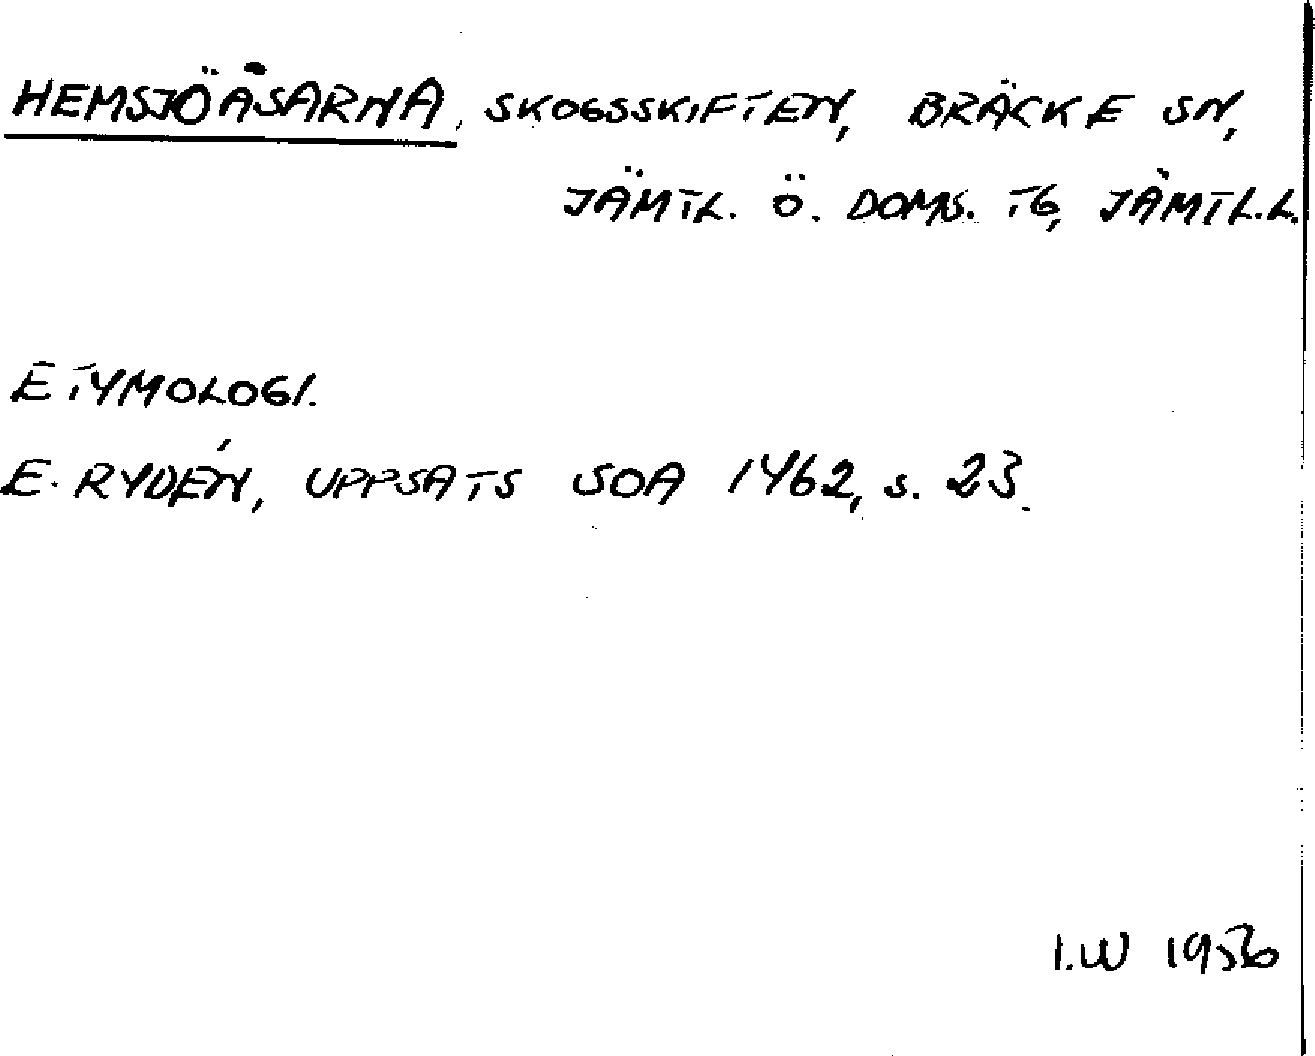 HEMSJÖÅSARNA, SKOGSSKIFTEN, BRÄCKE SN,
JÄMTL. Ö. DOMS. TG, JÄMTL.L.
ETYMOLOGI.
E. RYDÉN, UPPSATS SOA 1462, s. 23.
I.W 1956